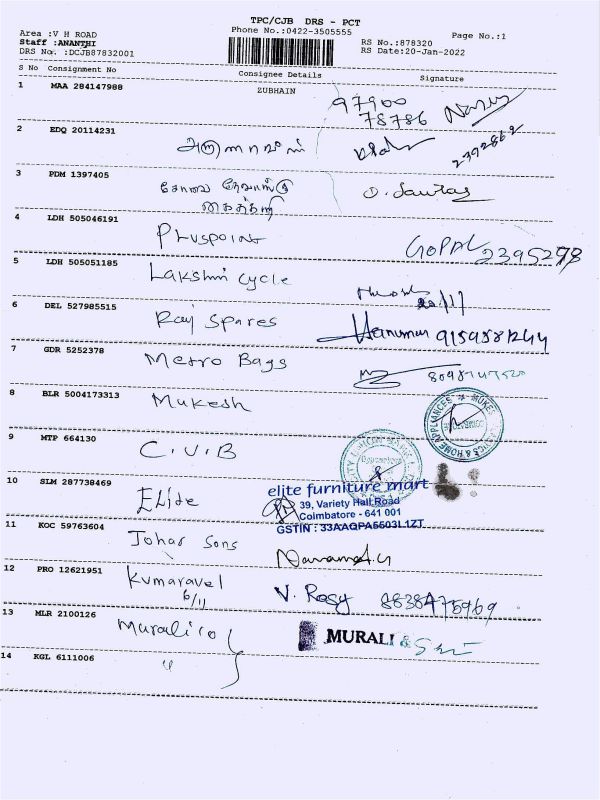 TPC/CJB DRS - PCT
Area :V H ROAD
Phone No.:0422-3505555
Page No.:1
Staff :ANANTHI
RS No.:878320
DRS No. :DCJB87832001
RS Date:20-Jan-2022
S No Consignment No Consignee Details Signature
1 MAA 284147988 ZUBHAIN
97900
78786
2 EDQ 20114231
2392862
3 PDM 1397405
கோவை
4 LDH 505046191 Pluspoint GOPAL 2395278
5 LDH 505051185 Lakshmi cycle
6 DEL 527985515 Raj Spares Hanuman 9159581244
7 GDR 5252378 Metro Bags
8 BLR 5004173313 Mukesh
9 MTP 664130 C.U.B
10 SLM 287738469 Elite
elite furniture mart
39, Variety Hall Road
Coimbatore - 641 001
GSTIN : 33AAQPA5503L1ZT
11 KOC 59763604 Johar Sons
12 PRO 12621951 Kumaravel
6/11
V. Rosy 8838475969
13 MLR 2100126 Murali
MURALI &
14 KGL 6111006 "